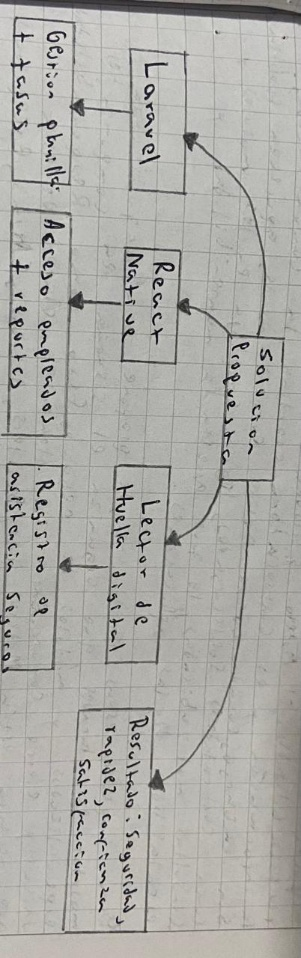 Solucion
Propuesta
Laravel
Gestion planilla
+ tasas
React
Native
Acceso empleados
+ reportes
Lector de
Huella digital
Registro de
asistencia seguros
Resultado: seguridad,
rapidez, confianza
satisfaccion